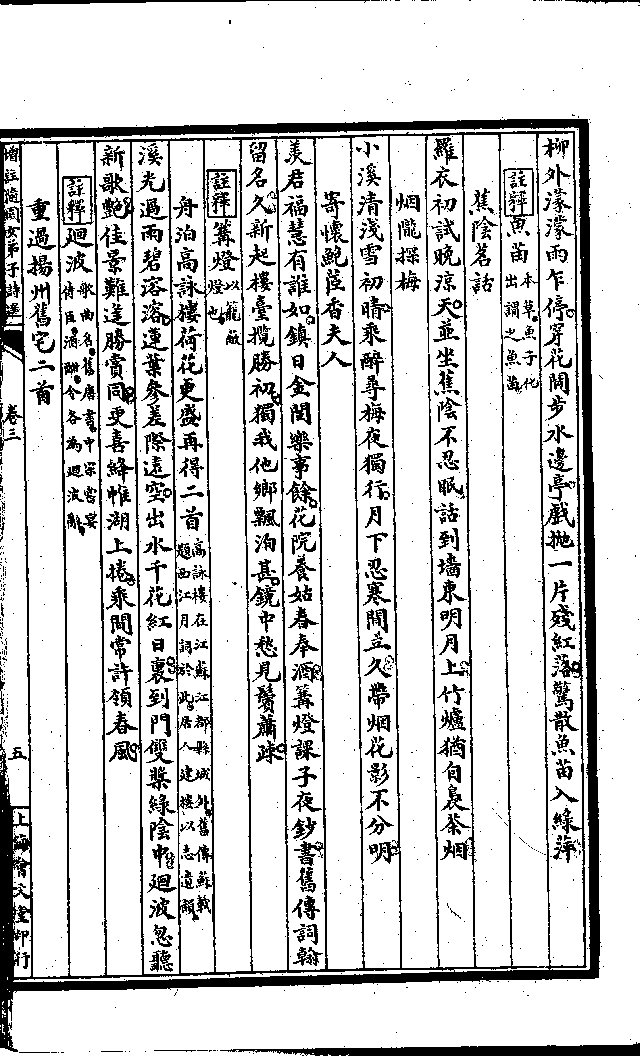 柳外濛濛雨乍停穿花閒步水邊亭戲拋一片殘紅落驚散魚苗入綠萍
註釋 魚苗 本草魚子化出謂之魚苗
蕉陰茗話
羅衣初試晚涼天並坐蕉陰不忍眠話到墻東明月上竹爐猶自裊茶烟
烟隴探梅
小溪清淺雪初晴乘醉尋梅夜獨行月下忍寒閒立久帶烟花影不分明
寄懷鮑茝香夫人
羨君福慧有誰如鎮日金閨樂事餘花院養姑春奉酒篝燈課子夜鈔書舊傳詞翰
留名久新起樓臺攬勝初獨我他鄉飄泊甚鏡中愁見鬢蕭疎
註釋 篝燈 以籠蔽燈也
舟泊高詠樓荷花更盛再得二首 高詠樓在江蘇江都縣城外舊傳蘇軾題西江月詞於此居人建樓以志遺蹟
溪光過雨碧溶溶蓮葉參差際遠空出水千花紅日裏到門雙槳綠陰中廻波忽聽
新歌艷佳景難逢勝賞同更喜絳帷湖上捲乘閒常許領春風
註釋 廻波 歌曲名舊唐書中宗嘗宴侍臣酒酣令各為廻波辭
重過揚州舊宅二首
增註隨園女弟子詩選 卷三 五 上海會文堂印行